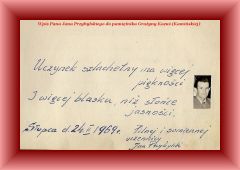 Wpis Pana Jana Przybylskiego do pamiętnika Grażyny Kozak (Kamińskiej)
Uczynek szlachetny ma więcej
piękności
I więcej blasku, niż słońce
jasności.
Słupca d. 24.II 1969r.
Pilnej i sumiennej
uczennicy
Jan Przybylski